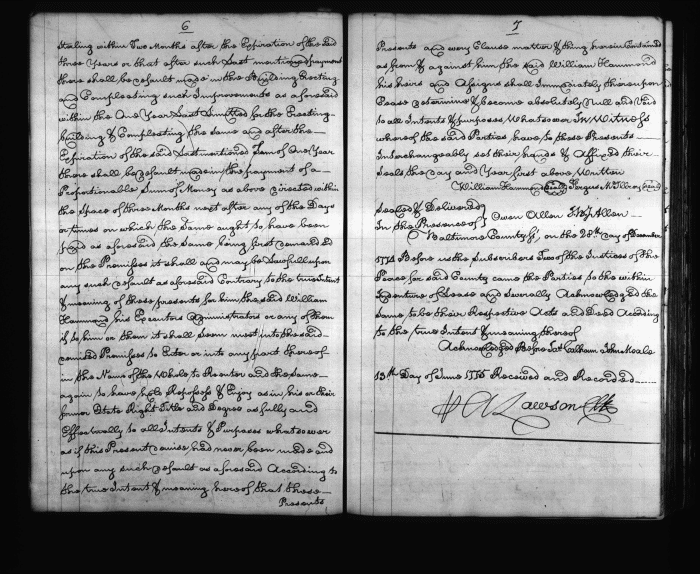 6
Sterling within Two Months after the Expiration of the Said
three Years or that after such Last mentioned payment
there shall be default made in the Building Erecting
and Compleating such Improvements as aforesaid
within the One Year Last Limitted for the Erecting
building & Compleating the same and after the
Expiration of the said Last mentioned Term of One Year
there shall be default made in the payment of a
Proportionable Sum of Money as above directed within
the Space of three Months next after any of the Days
or times on which the Same aught to have been
paid as aforesaid the Same being first demanded
on the Premises it shall and may be Lawfull upon
any such default as aforesaid Contrary to the true Intent
& meaning of these presents for him the said William
Hammond his Executors Administrators or any of them
if to him or them it shall seem meet into the said
demised Premises to Enter or into any part thereof
in the Name of the Whole to Reenter and the same
again to have hold Repossess & Enjoy as in his or their
former State Right Title and Degree as fully and
Effectually to all Intents & Purposes whatsoever
as if this Present demise had never been made and
upon any such default as aforesaid According to
the true Intent & meaning hereof that these
Presents
7
Presents and every Clause matter & thing herein Contained
as from & against him the said William Hammond
his heirs and Assigns shall Immediately thereupon
Cease determine & become absolutely Null and Void
to all Intents & purposes Whatsoever In Witness
whereof the said Parties have to these Presents
Interchangeably set their hands & Affixed their
Seals the day and Year first above Written
William Hammond Seal Fergus McIllroy Seal
Sealed & Delivered
In the Presence of Owen Allen Allen
Baltimore County Sc. on the 28th day of December
1774 Before us the Subscribers Two of the Justices of the
Peace for said County came the Parties to the within
Indenture of Lease and Severally Acknowledged the
Same to be their Respective Acts and Deed According
to the true Intent & meaning thereof
Acknowledged Before Jas Calhoun Jno Moale
13th Day of June 1775 Received and Recorded
A Lawson Clk